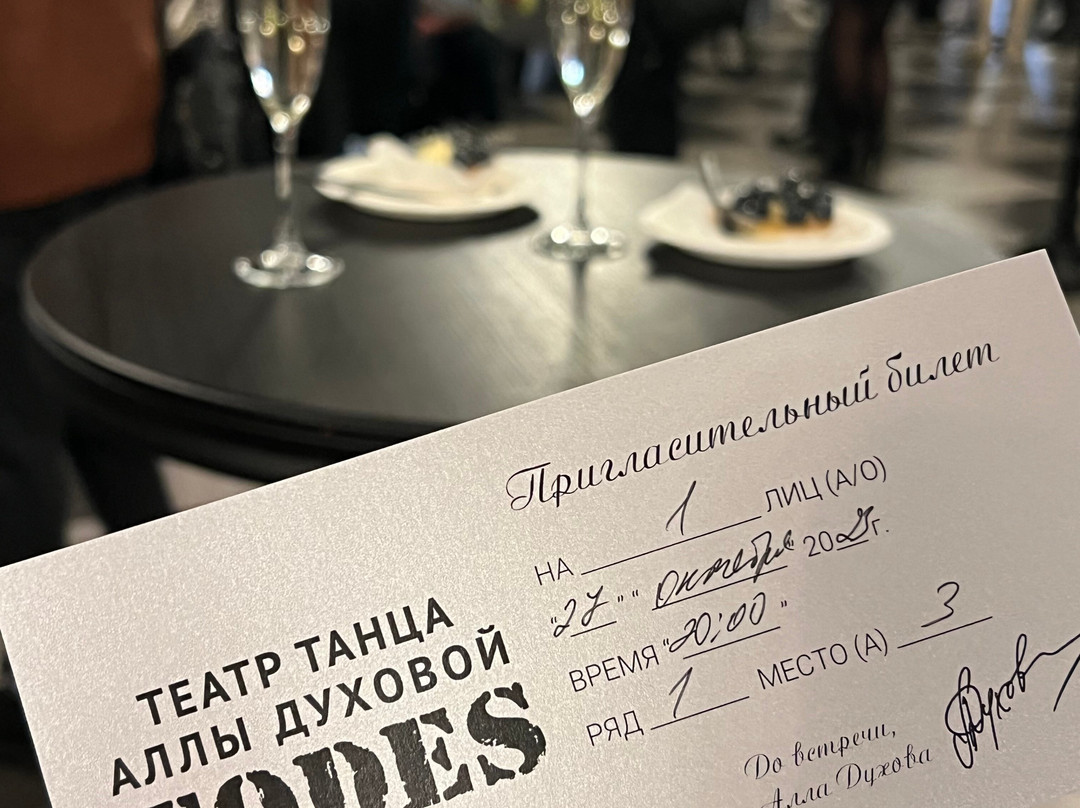 Пригласительный билет
НА 1 ЛИЦ (А/О)
"27" "октября" 20 г.
ВРЕМЯ "20:00"
РЯД 1 МЕСТО (А) 3
До встречи,
Алла Духова
ТЕАТР ТАНЦА
АЛЛЫ ДУХОВОЙ
TODES